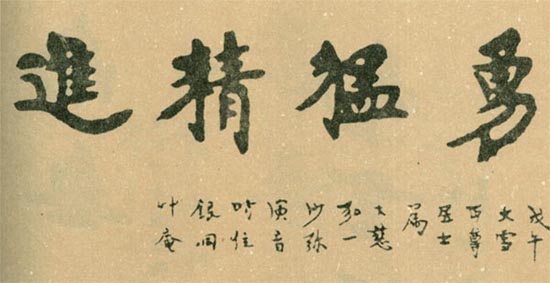 勇猛精進
戊午
大雪
丏尊
居士
屬
大慈
弘一
沙弥
演音
時住
銀洞
叶庵